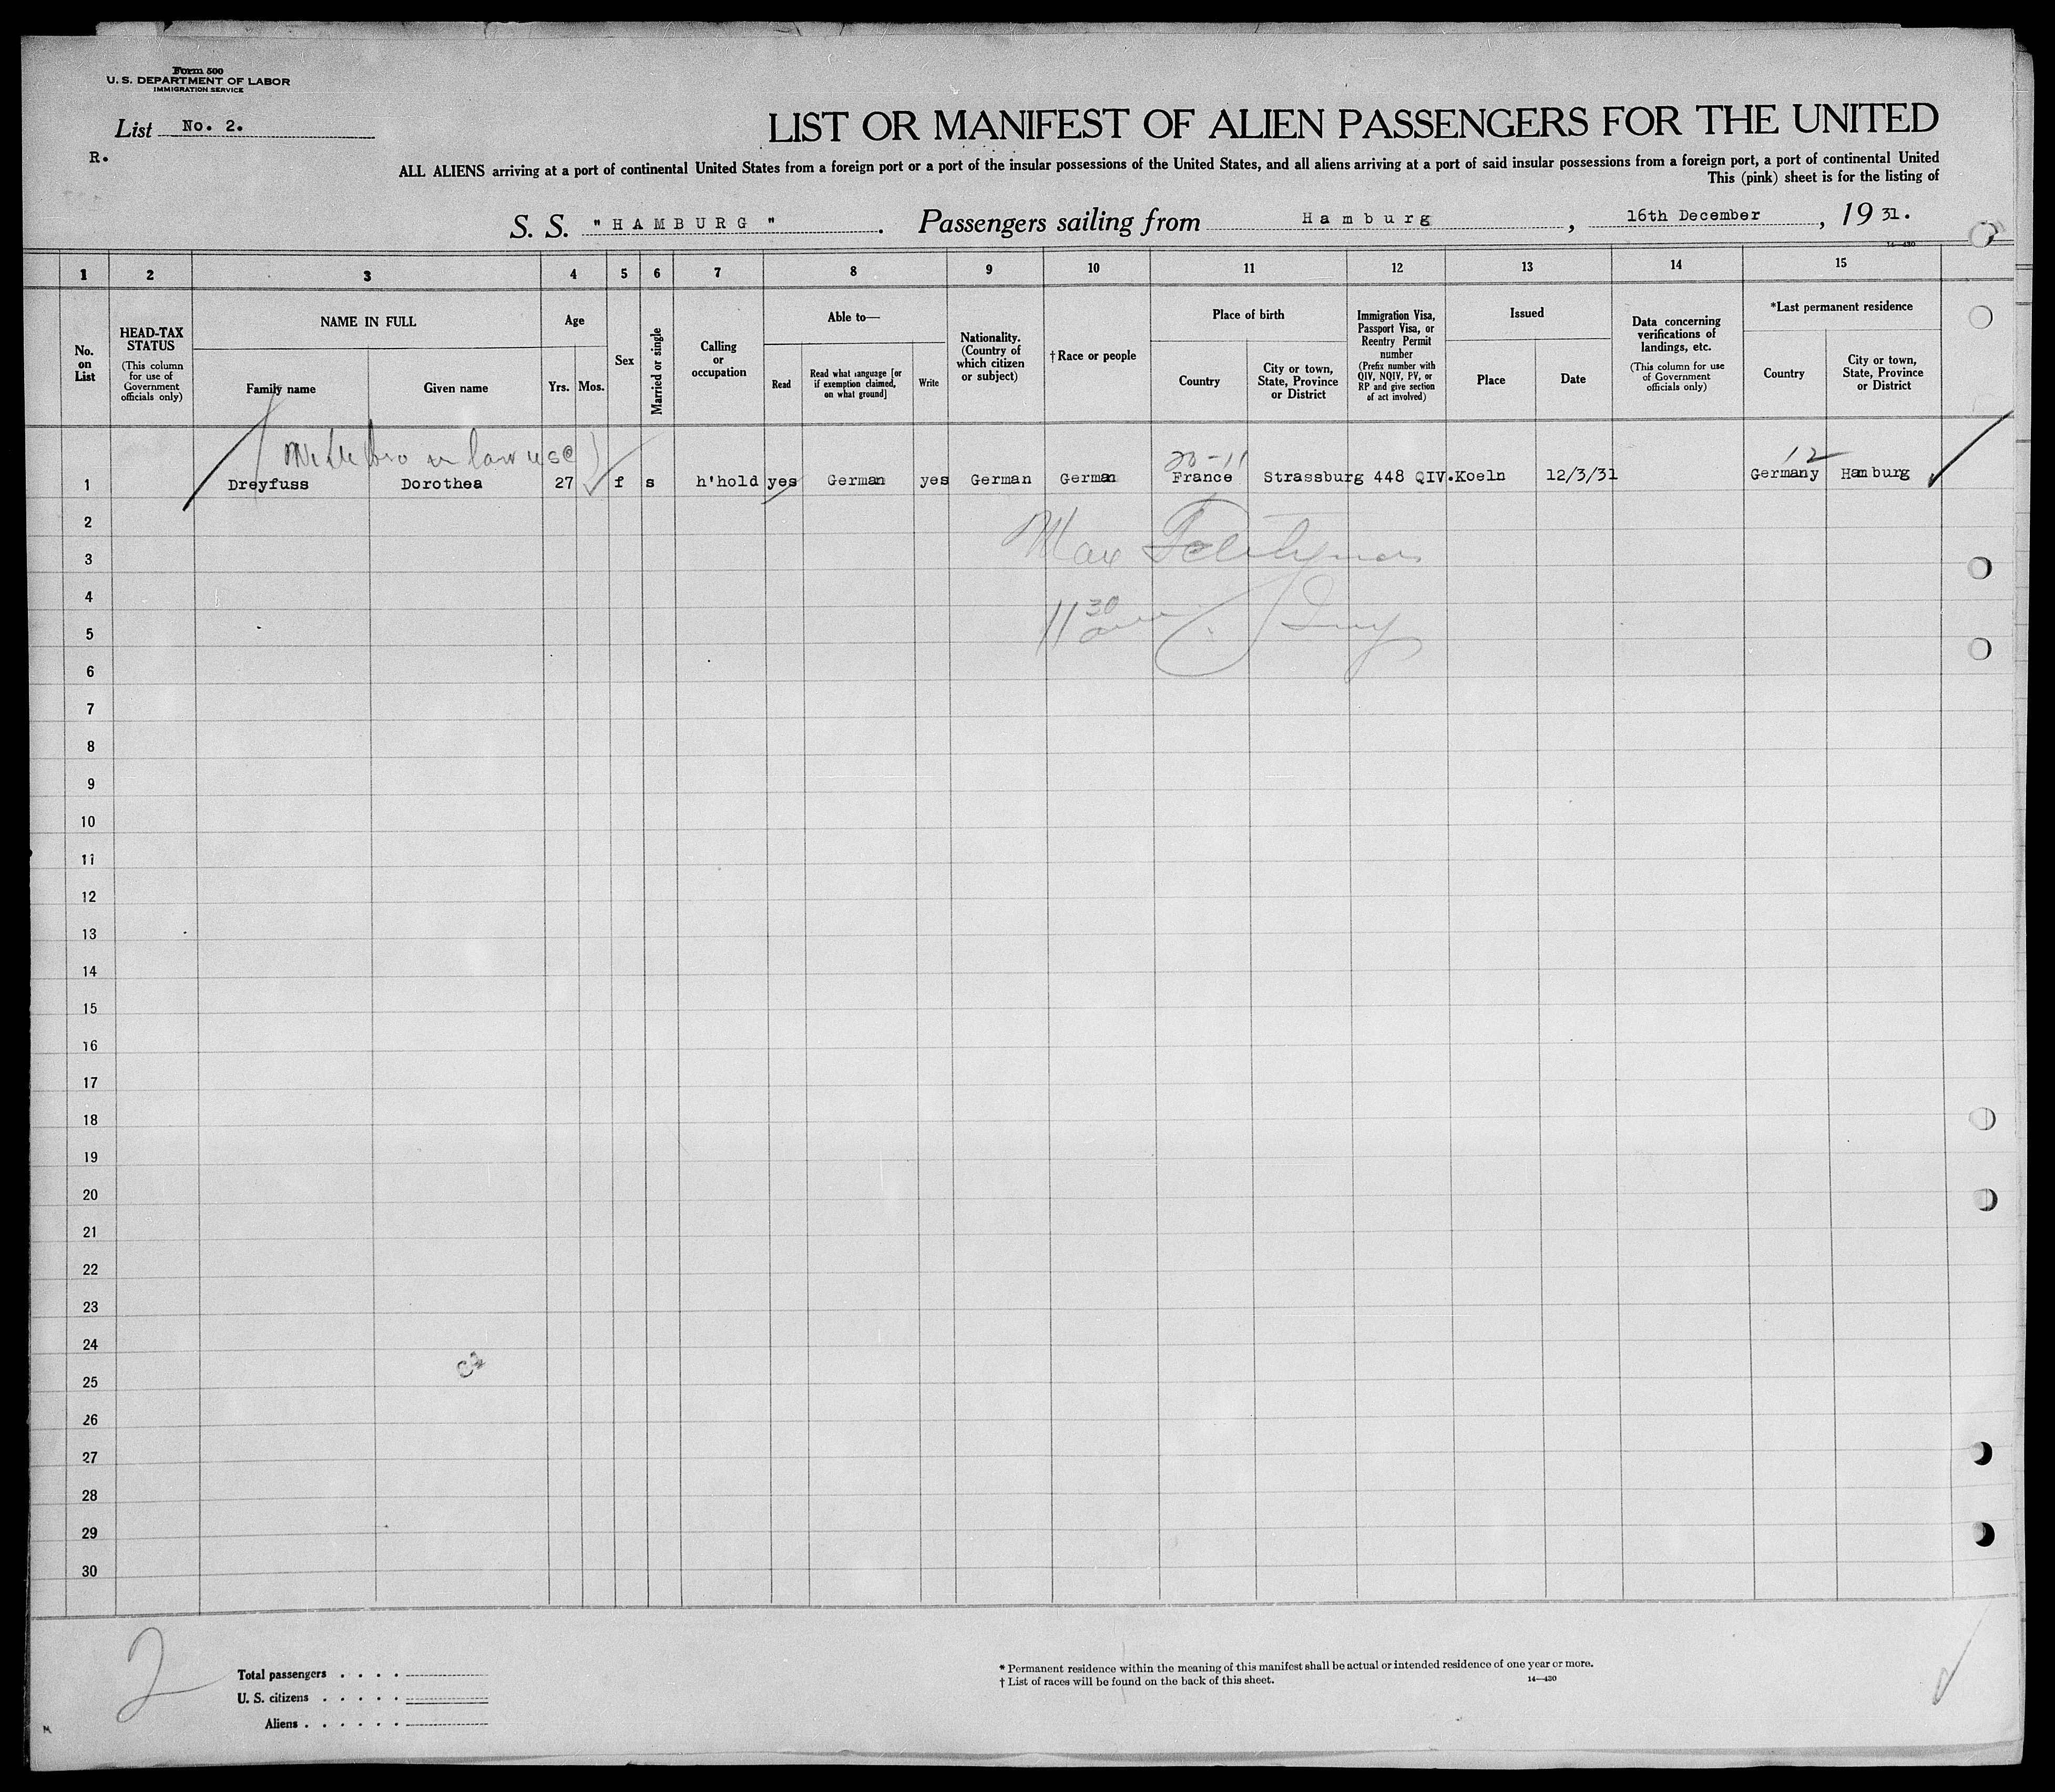 Form 500
U. S. DEPARTMENT OF LABOR
IMMIGRATION SERVICE
List No. 2.
R.
LIST OR MANIFEST OF ALIEN PASSENGERS FOR THE UNITED
ALL ALIENS arriving at a port of continental United States from a foreign port or a port of the insular possessions of the United States, and all aliens arriving at a port of said insular possessions from a foreign port, a port of continental United
This (pink) sheet is for the listing of
S. S. "HAMBURG". Passengers sailing from Hamburg, 16th December, 19 31.
14—430
1 2 3 4 5 6 7 8 9 10 11 12 13 14 15
No. on List
HEAD-TAX STATUS
(This column for use of Government officials only)
NAME IN FULL
Family name
Given name
Age
Yrs.
Mos.
Sex
Married or single
Calling or occupation
Able to—
Read
Read what language [or if exemption claimed, on what ground]
Write
Nationality. (Country of which citizen or subject)
†Race or people
Place of birth
Country
City or town, State, Province or District
Immigration Visa, Passport Visa, or Reentry Permit number
(Prefix number with QIV, NQIV, PV, or RP and give section of act involved)
Issued
Place
Date
Data concerning verifications of landings, etc.
(This column for use of Government officials only)
*Last permanent residence
Country
City or town, State, Province or District
in law
20-11
12
1 Dreyfuss Dorothea 27 f s h'hold yes German yes German German France Strassburg 448 QIV.Koeln 12/3/31 Germany Hamburg
2
Max
3
4
11 30
5
6
7
8
9
10
11
12
13
14
15
16
17
18
19
20
21
22
23
24
25
26
27
28
29
30
2
Total passengers . . . .
U. S. citizens . . . . .
Aliens . . . . . .
* Permanent residence within the meaning of this manifest shall be actual or intended residence of one year or more.
† List of races will be found on the back of this sheet.
14—430